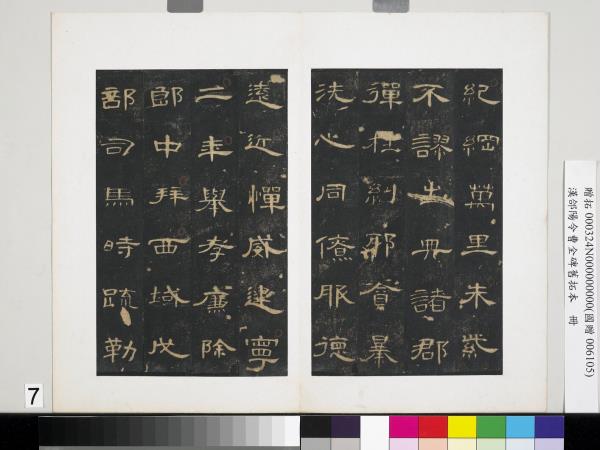 紀綱萬里朱紫
不謬出典諸郡
彈枉糾邪貪暴
洗心同僚服德
遠近憚威建寧
二年舉孝廉除
郎中拜西域戊
部司馬時疏勒
贈拓 000324N000000000(國贈 006105)
漢郃陽令曹全碑舊拓本 冊
7